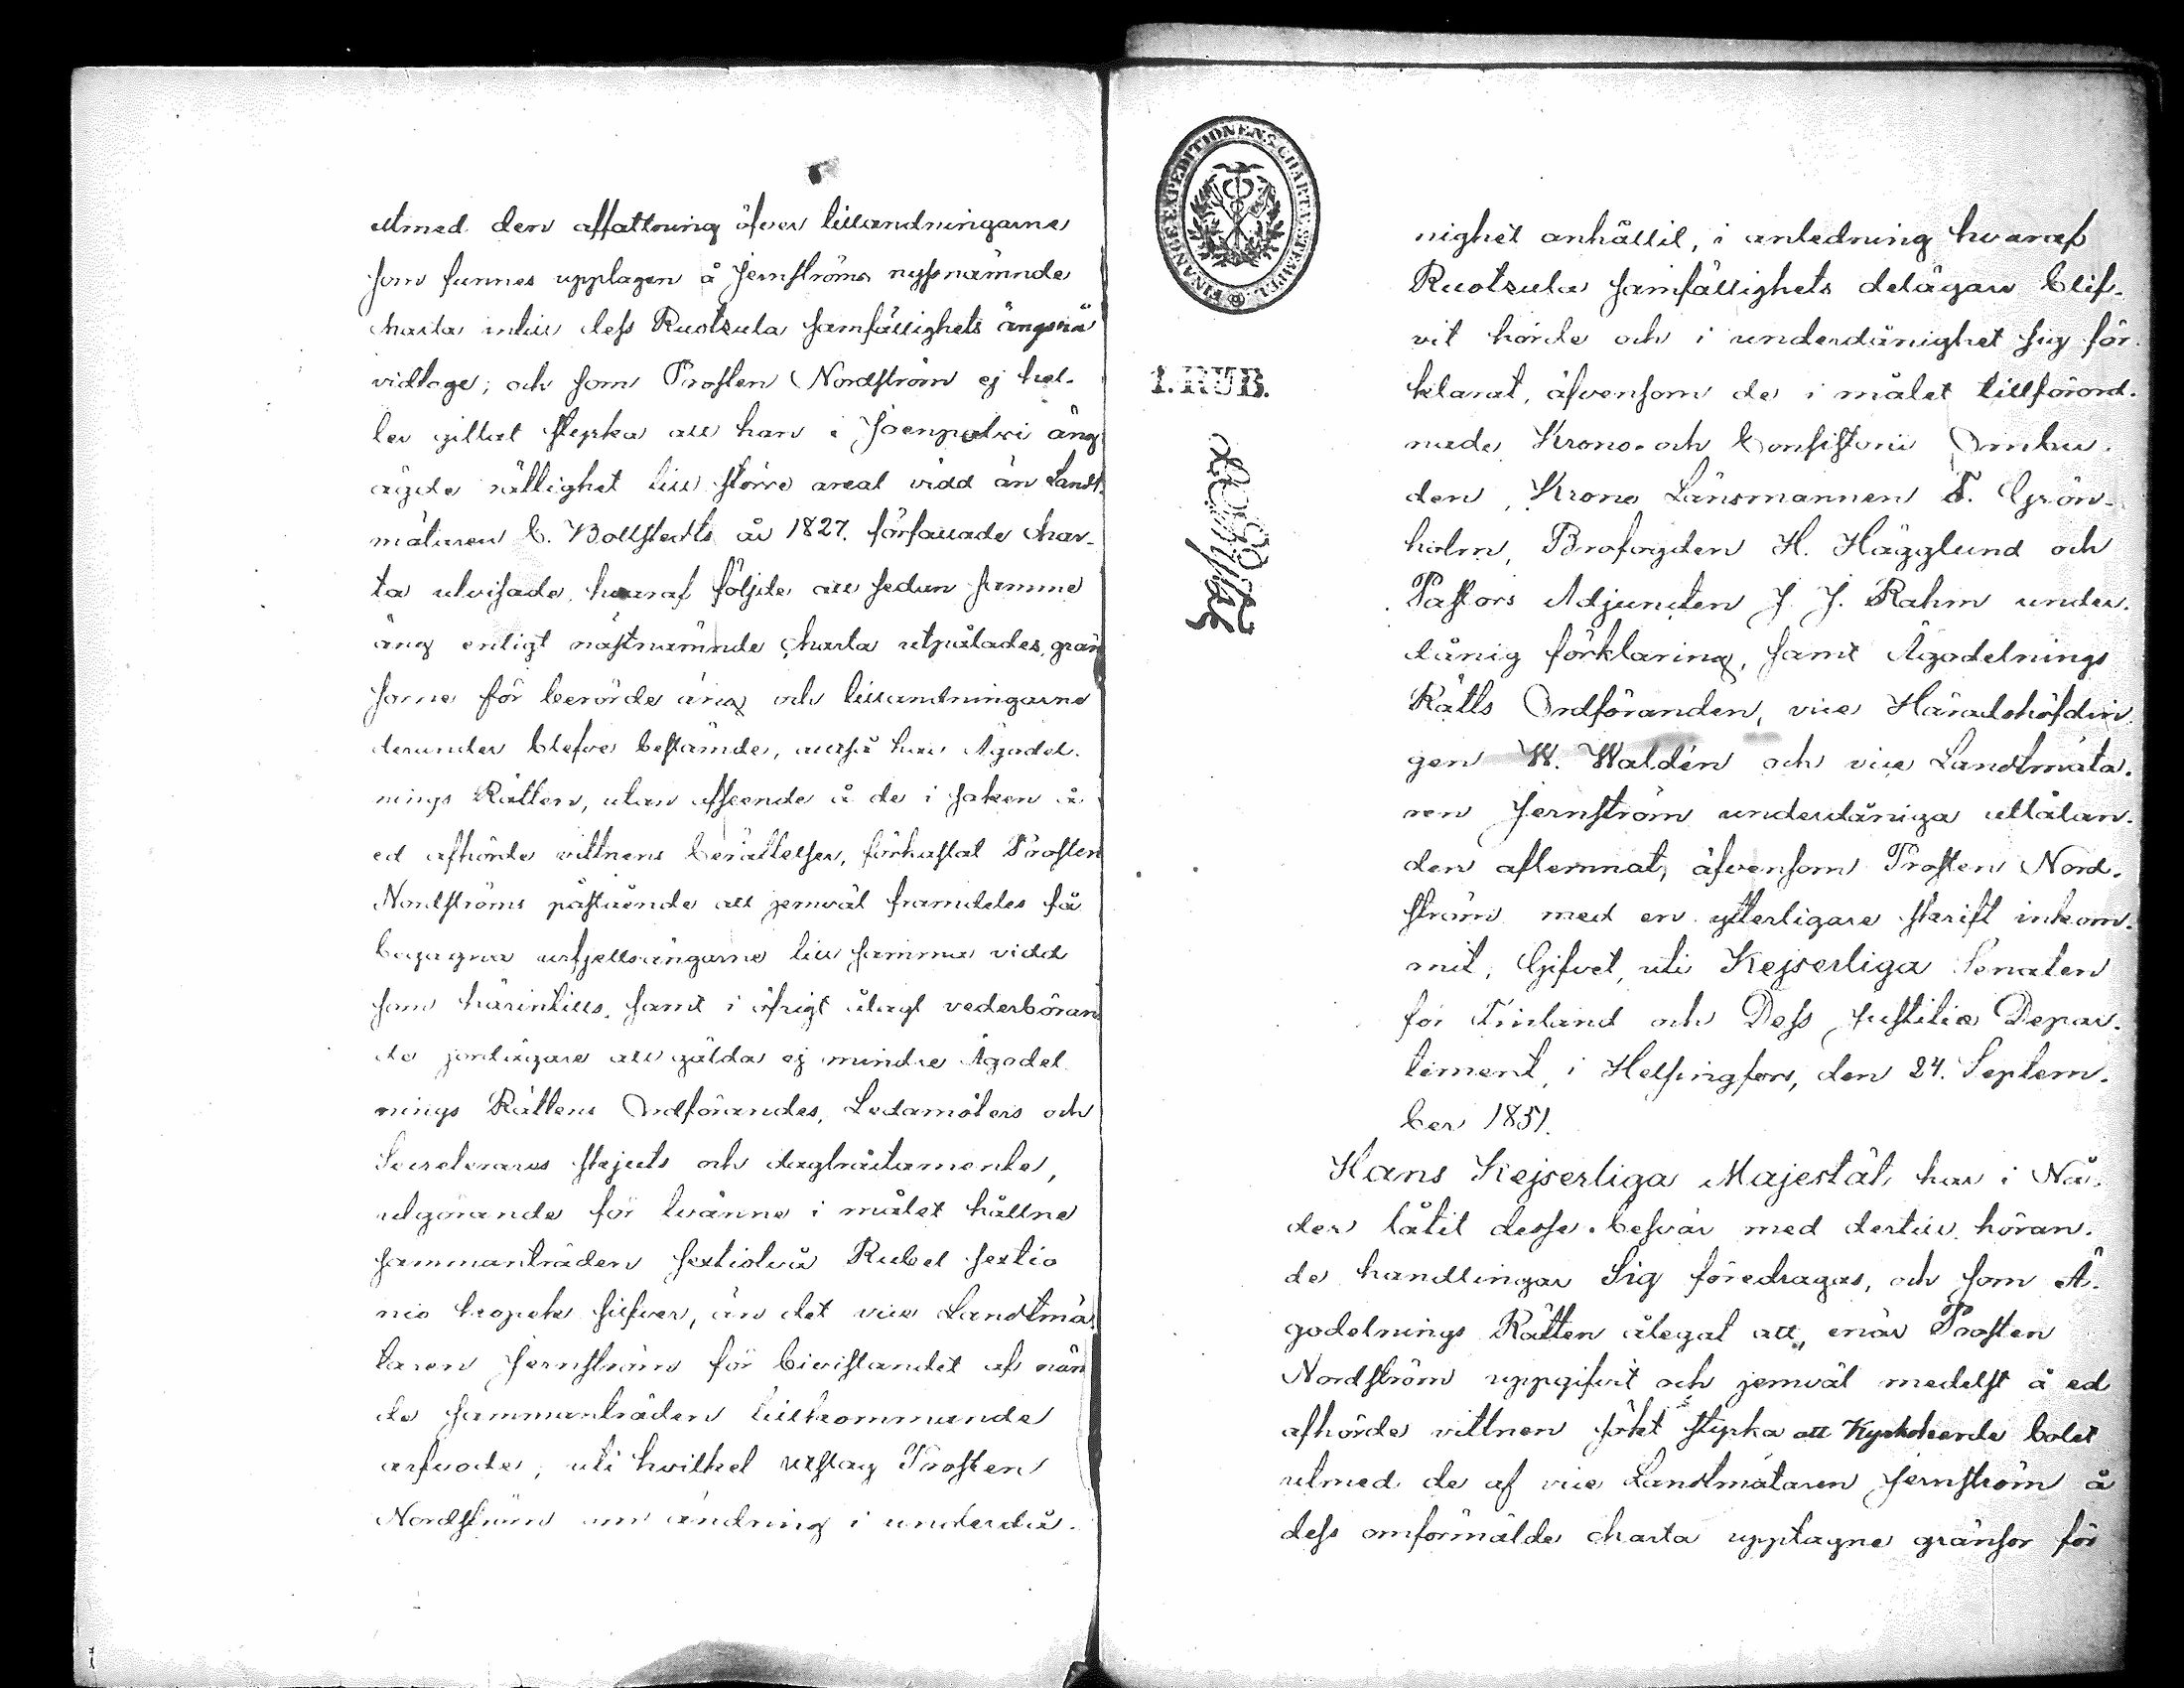 utmed den affattning öfver tillandningarne
som funnes upptagen å Jernströms nyssnämnde
charta intill dess Ruotsula samfällighets ängsrå
vidtoge; och som Prosten Nordström ej hel-
ler gittat styrka att han i Joenpolvi äng
ägde rättighet till större areal vidd än Landt-
mätaren C. Bollstedts år 1827. författade char-
ta utvisade, hvaraf följde att sedan samme
äng enligt nästnämnde charta utpålades, grän
sorne för berörde äng och tillandningarne
derunder blefve bestämde, alltså har Ägodel-
nings Rätten, utan afseende å de i saken å
ed afhörde vittnens berättelser, förkastat Prosten
Nordströms påstående att jemväl framdeles få
begagna urfjellsängarne till samma vidd
som härintills, samt i öfrigt ålagt vederböran
de jordägare att gälda ej mindre Ägodel-
nings Rättens Ordförandes, Ledamöters och
Secreterares skjuts och dagtraktamente,
utgörande för tvänne i målet hållne
sammanträden sextiotvå Rubel sextio
nio kopek silfver, än det vice Landtmä
taren Jernström för bivistandet af näm
de sammanträden tillkommande
arfvode; uti hvilket utslag Prosten
Nordström om ändring i underdå-
FINANCE EXPEDITIONENS CHARTÆ STEMPEL
1. RUB.
nighet anhållit, i anledning hvaraf
Ruotsula samfällighets delägare blif-
vit hörde och i underdånighet sig för-
klarat, äfvensom de i målet tillförord-
nade Krono- och Consistorii Ombu-
den, Krono Länsmannen F. Grön-
holm, Brofogden H. Hägglund och
Pastors Adjuncten J. J. Rahm under-
dånig förklaring, samt Ägodelnings
Rätts Ordföranden, vice Häradshöfdin-
gen W. Waldén och vice Landtmäta-
ren Jernström underdåniga utlåtan-
den aflemnat, äfvensom Prosten Nord-
ström med en ytterligare skrift inkom-
mit; Gifvet, uti Kejserliga Senaten
för Finland och Dess Justitiæ Depar-
tement, i Helsingfors, den 24. Septem-
ber 1851.
Hans Kejserliga Majestät har i Nå-
der låtit desse besvär med dertill höran-
de handlingar Sig föredragas, och som Ä-
godelnings Rätten ålegat att, enär Prosten
Nordström uppgifvit och jemväl medelst å ed
afhörde vittnen sökt styrka att Kyrkoherde bolet
utmed de af vice Landtmätaren Jernström å
dess omförmälde charta upptagne gränsor för